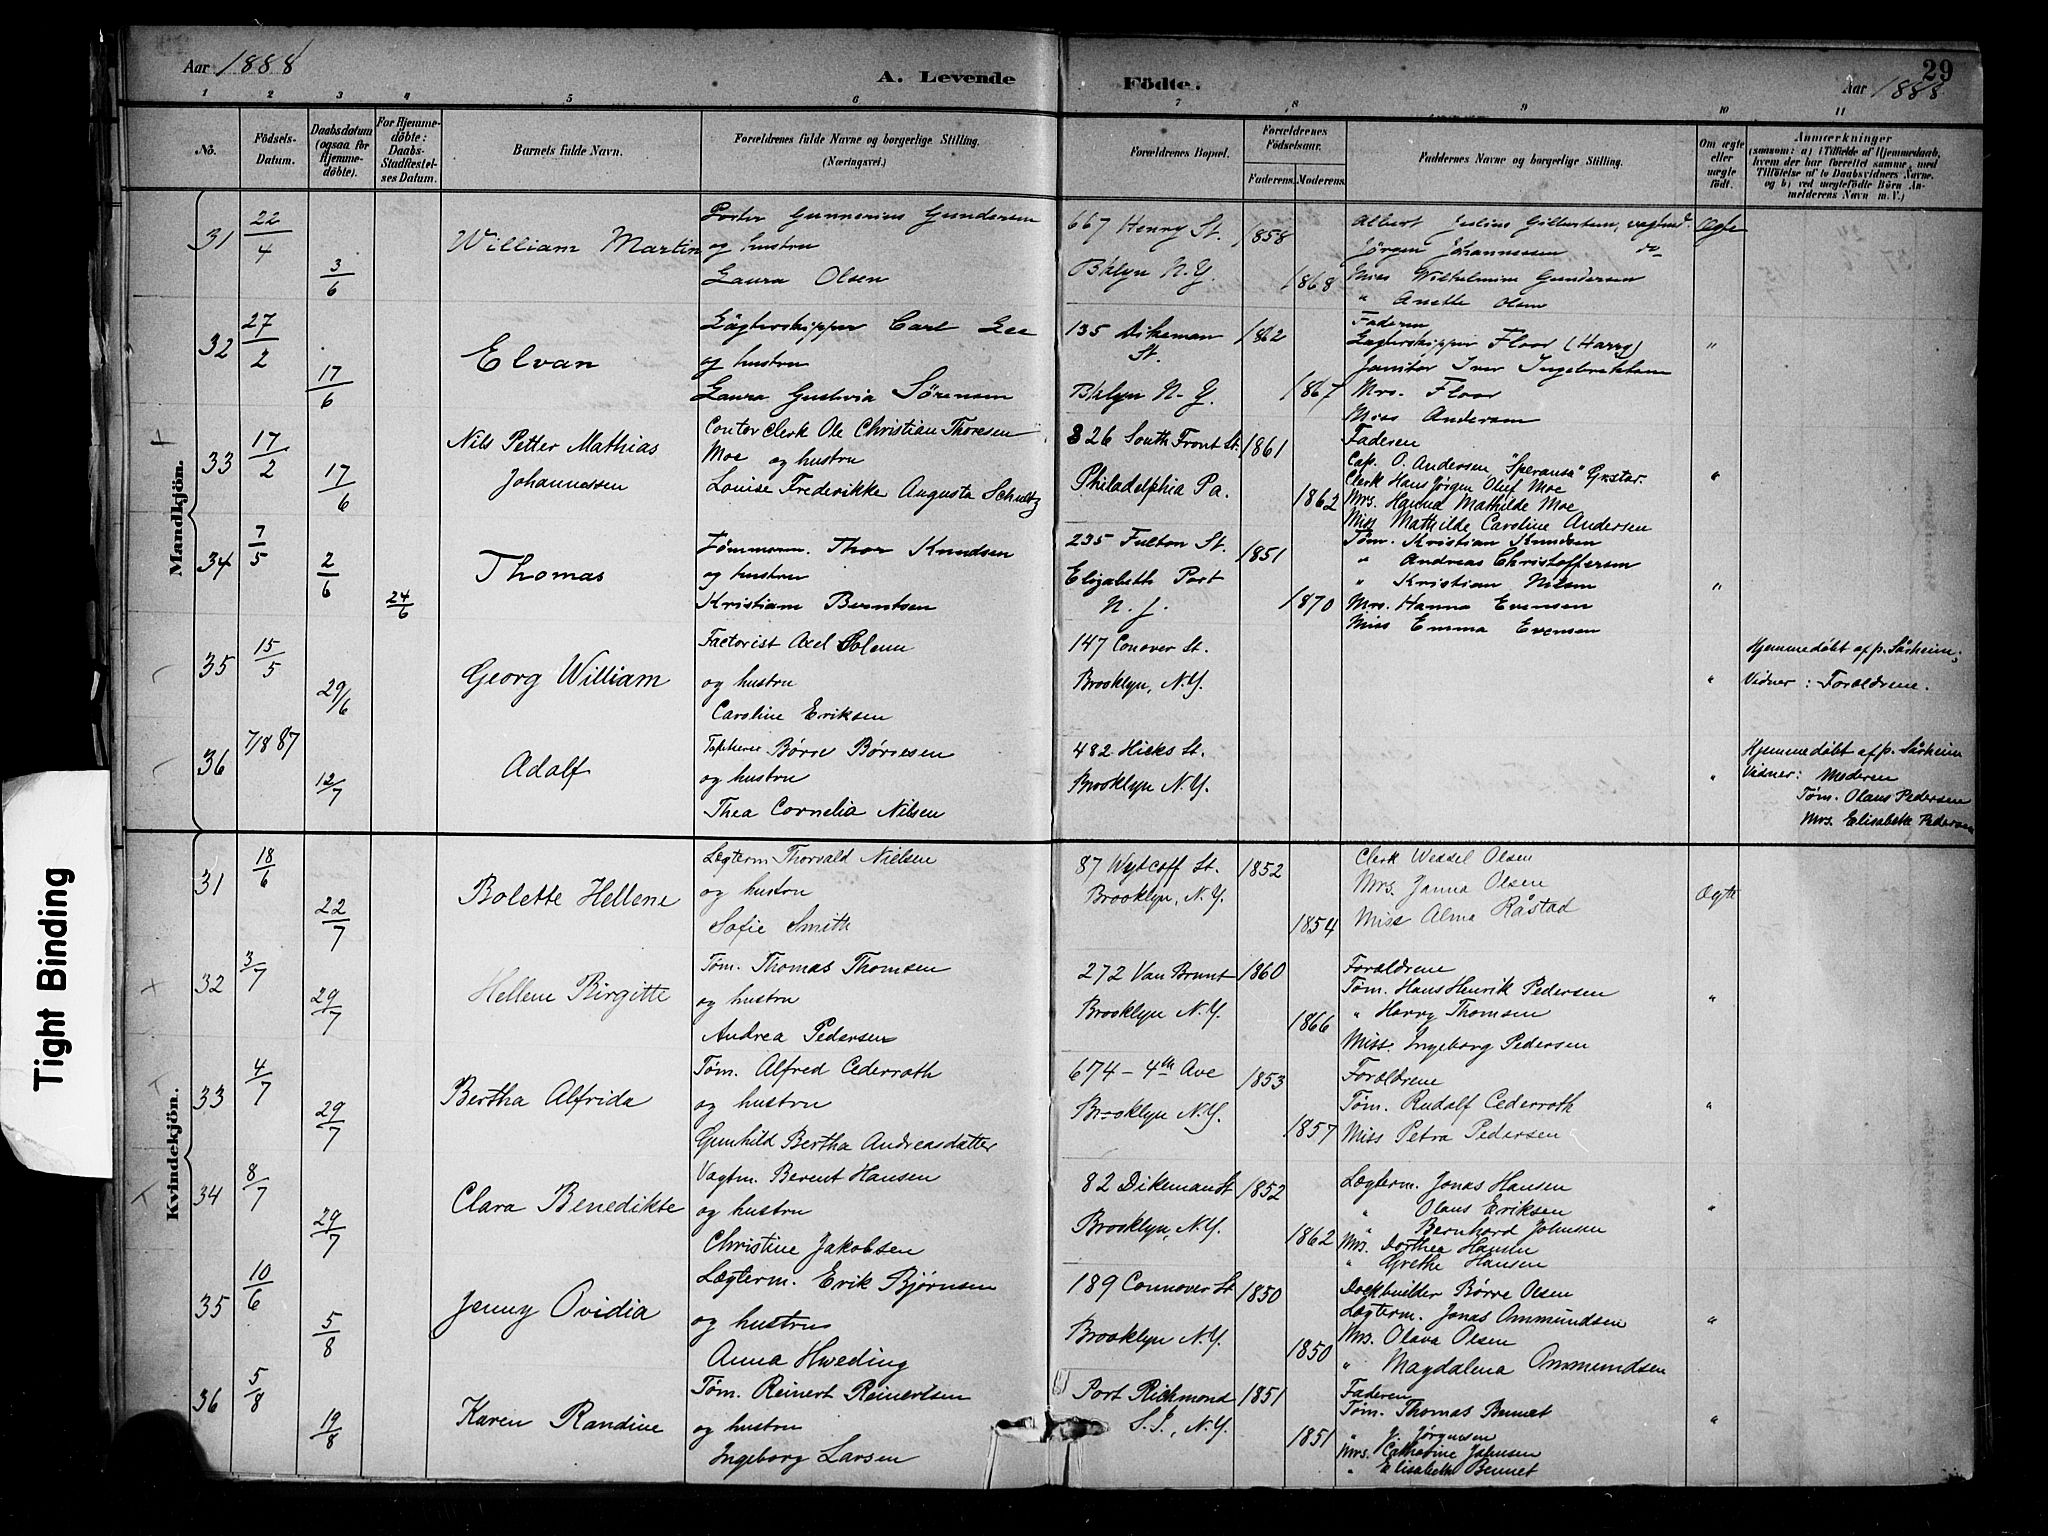 Aar 1888
A. Levende
Födte.
29
Aar 1888
1 2 3 4 5 6 7 8 9 10 11
No.
Födsels-Datum.
Daabsdatum (ogsaa for Hjemme-döbte).
For Hjemme-döbte: Daabs-Stadfæstel-ses Datum.
Barnets fulde Navn.
Forældrenes fulde Navne og borgerlige Stilling. (Næringsvei.)
Forældrenes Bopæl.
Forældrenes Födselsaar.
Faderens. Moderens.
Faddernes Navne og borgerlige Stilling.
Om ægte eller uægte födt.
Anmærkninger
(saasom: a) i Tilfælde af Hjemmedaab,
hvem der har forrettet samme, med
Tilföielse af to Daabsvidners Navne.
og b) ved uægtefödte Börn An-
melderens Navn m. V.)
Mandkjön.
31 22/4 3/6
William Martin
Gunnerius Gundersen
og hustru
Laura Olsen
667 Henry St.
B'klyn N.Y.
1858
1868
Albert Julius
Jørgen Johannessen do
Miss Wilhelmine Gundersen
" Anette Olsen
Ægte
32 27/2 17/6
Elvan
Lægterskipper Carl Lee
og hustru
Laura Gustivia Sörensen
135 Dikeman
St.
B'klyn N.Y.
1862
1867
Faderen
Lægterskipper Floor (Harry)
Janitor Iver Ingebretsen
Mrs. Floor
Miss Andersen
"
33 17/2 17/6
Nils Petter Mathias
Johannessen
Contor clerk Ole Christian Thoresen
Moe og hustru
Louise Frederikke Augusta Schultz
826 South Front St.
Philadelphia Pa.
1861
1862
Faderen
Cap. O. Andersen "Speransa"
Clerk Hans Jørgen Oluf Moe
Mrs. Hanna Mathilde Moe
Miss Mathilde Caroline Andersen
"
34 7/5 2/6 24/6
Thomas
Tömmerm. Thor Knudsen
og hustru
Kristiane Berntsen
235 Fulton St.
Elizabeth Port
N.J.
1851
1870
Tøm. Kristian Knudsen
" Andreas Christoffersen
" Kristian Nilsen
Mrs. Hanna Evensen
Miss Emma Evensen
"
35 15/5 29/6
Georg William
Factorist Axel
og hustru
Caroline Eriksen
147 Conover St.
Brooklyn, N.Y.
"
Hjemmedøbt af p. Sårheim;
Vidner: Forældrene.
36 7/8 87 12/7
Adolf
Børre Børresen
og hustru
Thea Cornelia Nilsen
482 Hicks St.
Brooklyn N.Y.
"
Hjemmedøbt af p. Sårheim
Vidner: Moderen
Tøm. Olaus Pedersen
Mrs. Elisabeth Pedersen
Kvindekjön.
31 18/6 22/7
Bolette Hellene
Lægterm Thorvald Nielsen
og hustru
Sofie Smith
87 Wyscoff St.
Brooklyn, N.Y.
1852
1854
Clerk Wessel Olsen
Mrs. Janna Olsen
Miss Alma Råstad
Ægte
32 3/7 29/7
Hellene Birgitte
Tøm. Thomas Thomsen
og hustru
Andrea Pedersen
272 Van Brunt
Brooklyn N.Y.
1860
1866
Forældrene
Tøm. Hans Henrik Pedersen
" Harry Thomsen
Miss. Ingeborg Pedersen
"
33 4/7 29/7
Bertha Alfrida
Tøm. Alfred Cederroth
og hustru
Gunhild Bertha Andreasdatter
674 - 4th Ave
Brooklyn N.Y.
1853
1857
Forældrene
Tøm. Rudolf Cederroth
Miss Petra Pedersen
"
34 8/7 29/7
Clara Benedikte
Vagtm. Berent Hansen
og hustru
Christine Jakobsen
82 Dikeman St
Brooklyn, N.Y.
1852
1862
Lægterm. Jonas Hansen
" Olaus Eriksen
" Bernhard Johnsen
Mrs. Dorthea Hansen
" Grethe Hansen
"
35 10/6 5/8
Jenny Ovidia
Lægterm. Erik Bjørnsen
og hustru
Anna Hweding
189 Connover St
Brooklyn N.Y.
1850
1850
Dockbuilder Børre Olsen
Lægterm. Jonas Ommundsen
Mrs. Olava Olsen
" Magdalena Ommundsen
"
36 5/8 19/8
Karen Randine
Tøm. Reinert Reinertsen
og hustru
Ingeborg Larsen
Port Richmond
S.I., N.Y.
1851
1851
Faderen
Tøm. Thomas Bennet
" J. Jørgensen
Mrs. Cathatine Johnsen
" Elisabeth Bennet
"
Tight Binding